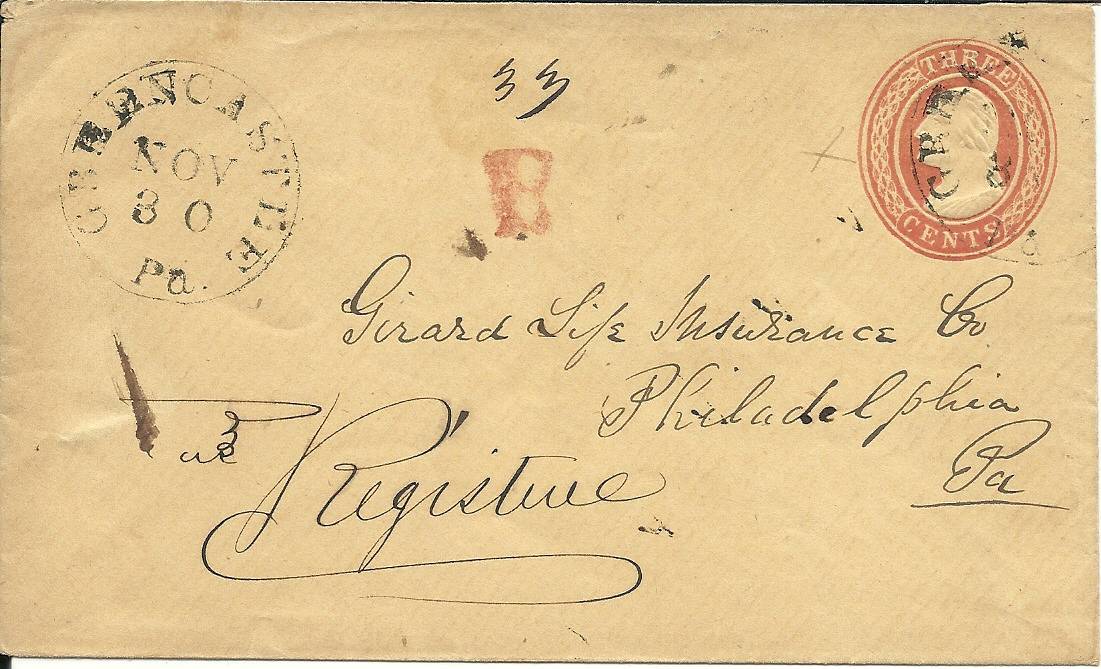 33
THREE
CENTS
GREENCASTLE
NOV
30
Pa.
Girard Life Insurance Co
Philadelphia
Pa